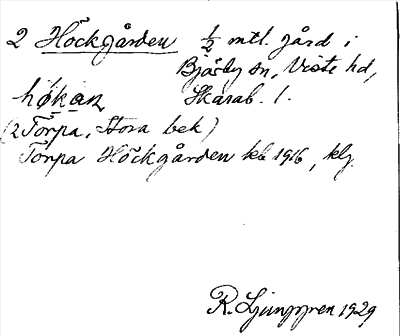 2 Höckgården ½ mtl. gård i
Bjärby sn, Viste hd,
høkan Skarab. l.
(2 Torpa, Stora bek)
Torpa Höckgården kb 1916, klg.
R. Ljunggren 1929